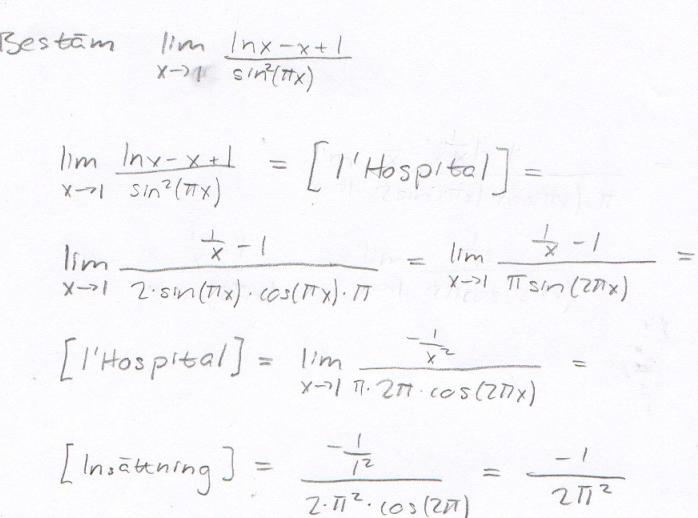 Bestäm lim x→1 (ln x - x + 1)/(sin²(πx))
lim x→1 (ln x - x + 1)/(sin²(πx)) = [l'Hospital] =
lim x→1 (1/x - 1)/(2·sin(πx)·cos(πx)·π) = lim x→1 (1/x - 1)/(π sin(2πx)) =
[l'Hospital] = lim x→1 (-1/x²)/(π·2π·cos(2πx)) =
[Insättning] = (-1/1²)/(2·π²·cos(2π)) = -1/(2π²)